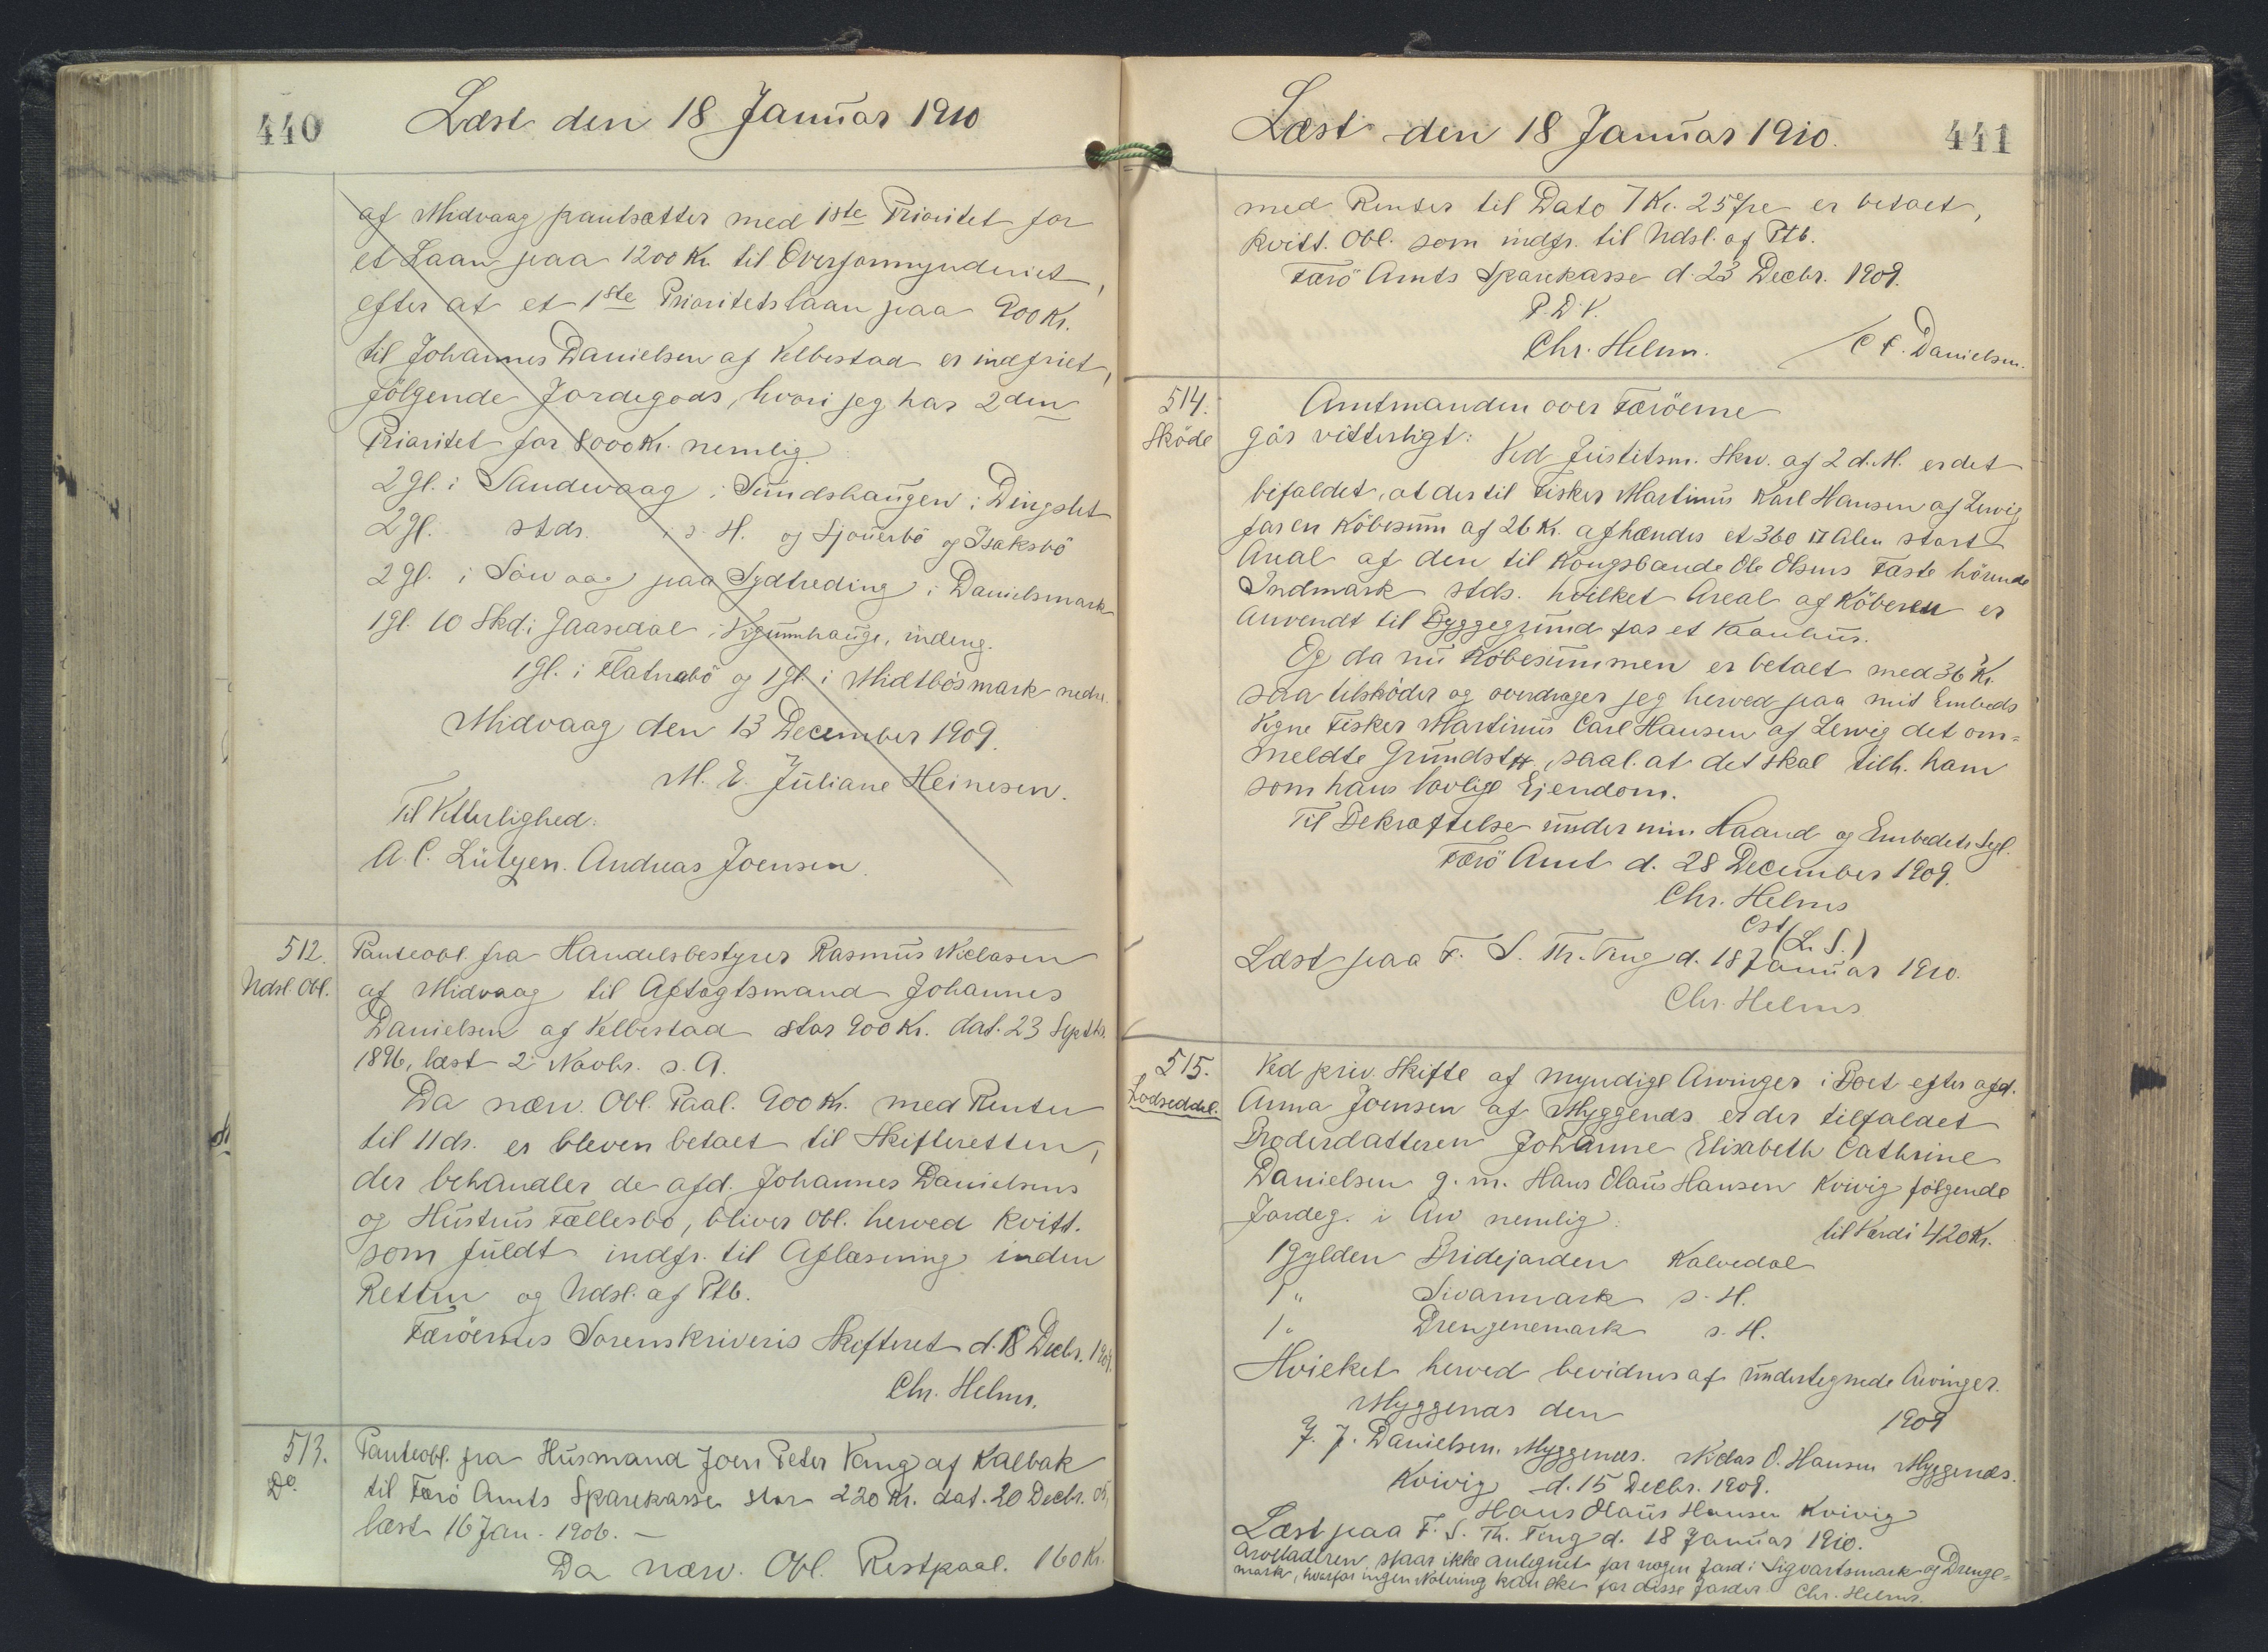 440
Læst den 18 Januar 1910
af Midvaag pantsætter med 1ste Prioritet for
et Laan paa 1200 Kr. til Overformynderiet,
efter at et 1ste Prioritetslaan paa 900 Kr.
til Johannes Danielsen af Velbestad er indfriet,
følgende Jordegods, hvori jeg har 2den
Prioritet for 8000 Kr. nemlig
2 gl. i Sandevaag i Sundshaugen i Dingslet
2 gl. stds. i s. H. og Sjouerbö og Isaksbö
2 gl. i Sörvaag paa Sydtreding i Danielsmark
1 gl. 10 Skd. i Gaasedal i inderg.
1 gl. i Flatnabö og 1 gl. i Midtbösmark nedre.
Midvaag den 13 December 1909.
M. E. Juliane Heinesen.
Til Vitterlighed:
A. C. Lützen. Andreas Joensen.
512.
Udsl. Obl.
Panteobl. fra Handelsbestyrer Rasmus Niclasen
af Midvaag til Aftægtsmand Johannes
Danielsen af Velbestad stor 900 Kr. dat. 23 Septbr.
1896, læst 2 Novbr. s. A.
Da nærv. Obl. Paal. 900 Kr. med Renter
til 11 ds. er bleven betalt til Skifteretten,
der behandler de afd. Johannes Danielsens
og Hustrus Fællesbo, bliver Obl. herved kvitt.
som fuldt indfr. til Aflæsning inden
Retten og Udsl. af Ptb.
Færöernes Sorenskriveris Skifteret d. 18 Decbr. 1909.
Chr. Helms.
513.
Do.
Panteobl. fra Husmand Joen Peter Vang af Kalbak
til Færö Amts Sparekasse stor 220 Kr. dat. 20 Decbr. 05,
læst 16 Jan. 1906. —
Da nærv. Obl. Restpaal. 160 Kr.
Læst den 18 Januar 1910.
441
med Renter til Dato 7 Kr. 25 Øre er betalt,
kvitt. Obl. som indfr. til Udsl. af Ptb.
Færö Amts Sparekasse d. 23 Decbr. 1909.
P. D. V.
Chr. Helms. / C F. Danielsen.
514.
Sköde
Amtmanden over Færöerne
gör vitterligt:
Ved Justitsm. Skr. af 2 d. M. er det
bifaldet, at der til Fisker Martinus Karl Hansen af Lervig
for en Købesum af 26 Kr. afhændes et 360 □ Alen stort
Areal af den til Kongsbonde Ole Olsens Fæste hörende
Indmark stds. hvilket Areal af Köberen er
anvendt til Byggegrund for et Vaanhus.
Og da nu Købesummen er betalt med 36 Kr.
saa tilsköder og overdrager jeg herved paa mit Embeds
Vegne Fisker Martinus Carl Hansen af Lervig det om=
meldte Grundst., saal. at det skal tilh. ham
som hans lovlige Ejendom.
Til Bekræftelse under min Haand og Embedets Segl.
Færö Amt d. 28 December 1909.
Chr. Helms
cst
(L. S.)
Læst paa F. S. Th. Ting d. 18 Januar 1910.
Chr. Helms
515.
Lodseddel.
Ved priv. Skifte af myndige Arvinger i Boet efter afd.
Anna Joensen af Myggenæs er der tilfaldet
Broderdatteren Johanne Elisabeth Cathrine
Danielsen g. m. Hans Olaus Hansen Kvivig følgende
Jordeg. i Arv nemlig:
til Værdi 420 Kr.
1 Gylden Bridejorden Kalvedal
1 " Sivarmark s. H.
1 " Drengenemark s. H.
Hvilket herved bevidnes af undertegnede Arvinger.
Myggenæs den 1909
J. J. Danielsen. Myggenæs. Niclas O. Hansen Myggenæs.
Kvivig d. 15 Decbr. 1909.
Hans Olaus Hansen Kvivig
Læst paa F. S. Th. Ting d. 18 Januar 1910.
Arvladeren staar ikke antegnet for nogen Jord i Sigvartsmark og Drenge=
mark, hvorfor ingen Notering kan ske for disse Jorder. Chr. Helms.